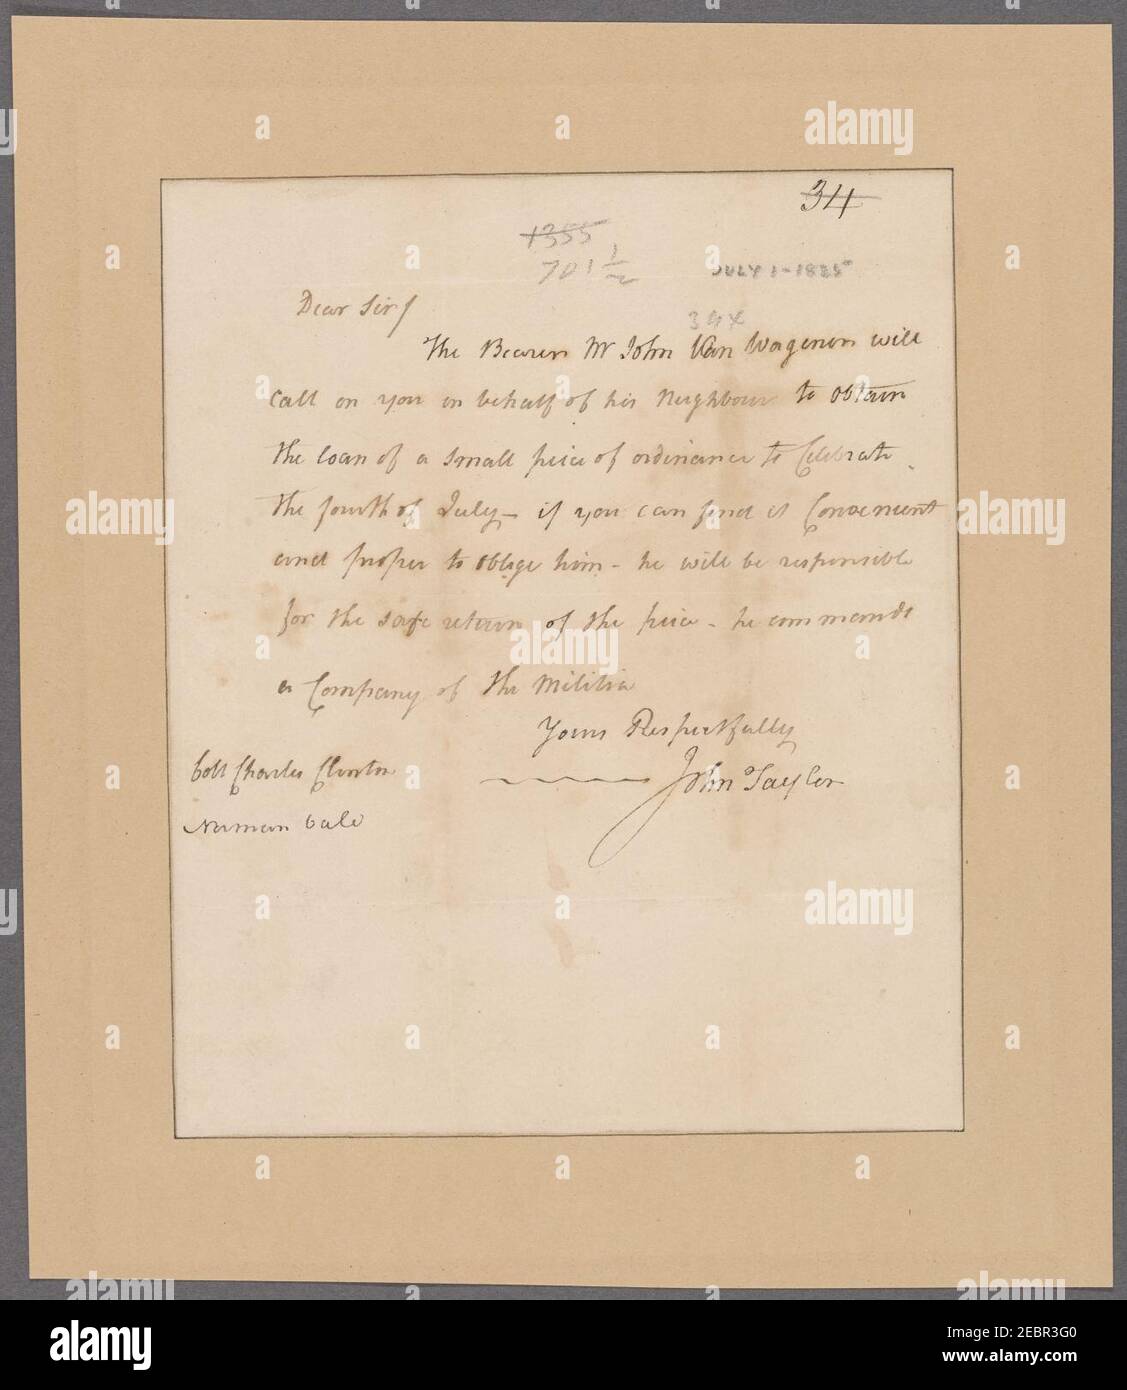 34
1355
701 1/2
JULY 1 - 1825
34x
Dear Sir/
The Bearer Mr John Van Wagenen will
call on you in behalf of his Neighbours to obtain
the loan of a small peice of ordinance to Celebrate
the fourth of July – if you can find it Convenient
and proper to oblige him – he will be responsible
for the safe return of the peice – he commands
a Company of the Militia
Yours Respectfully
John Tayler
Coll Charles Clinton
alamy
a
alamy
Image ID: 2EBR3G0
www.alamy.com